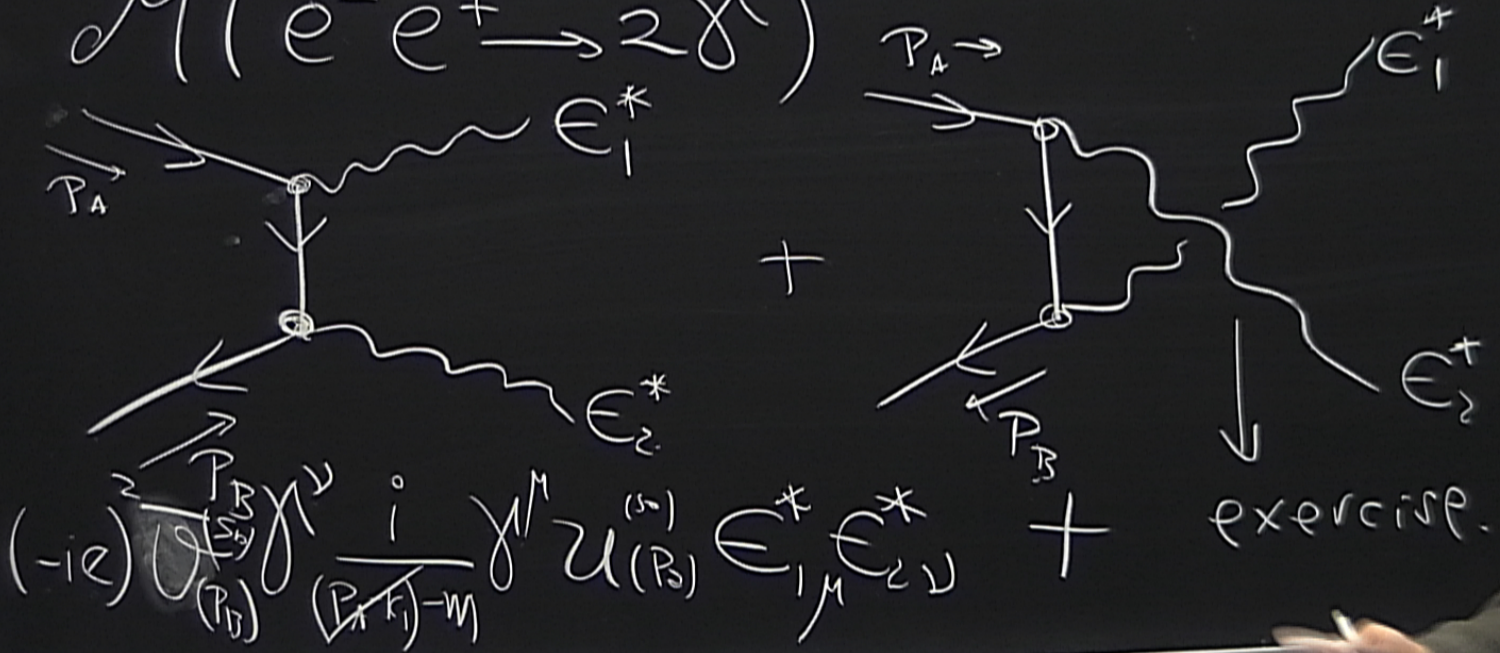 M(e⁻e⁺→2γ)
P_A→
ε₁*
ε₁*
P_A
+
ε₂*
ε₂*
P_B
P_B
(-ie)² v̄^(s_B)(P_B) γ^ν i/((P̸_A-k̸₁)-m) γ^μ u^(s₀)(P_B) ε*_{1μ} ε*_{2ν} +
exercise.